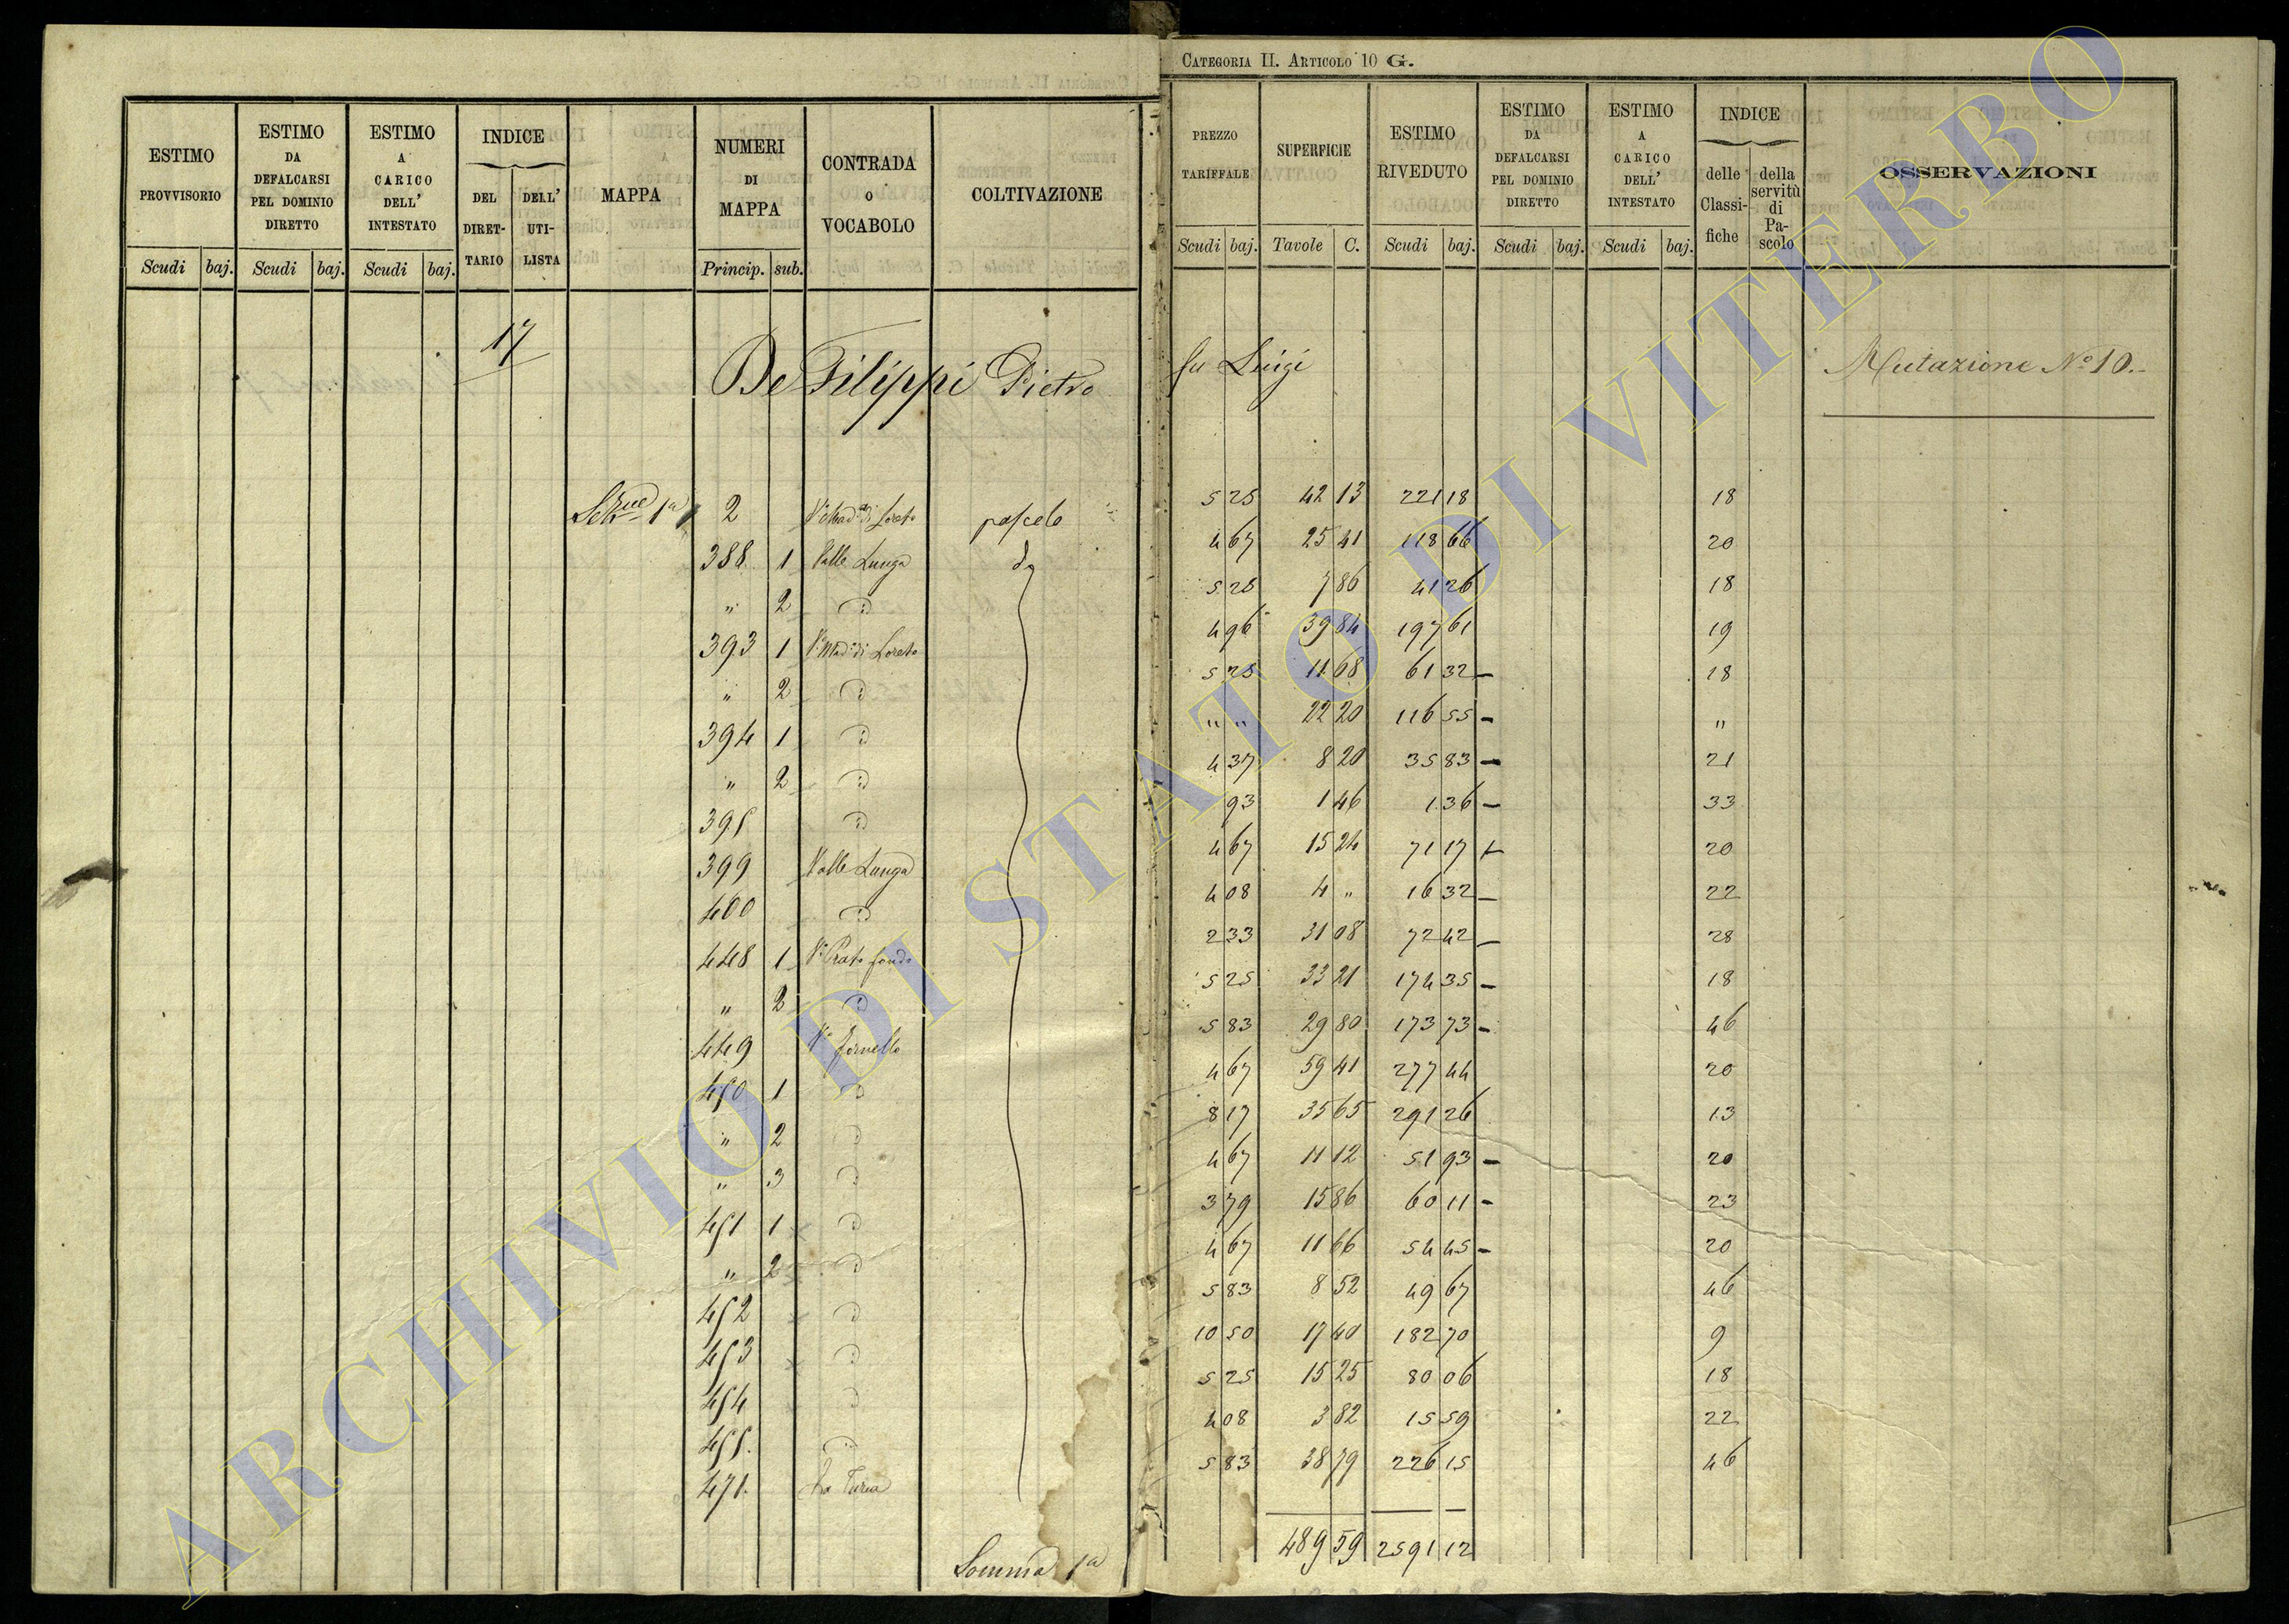 CATEGORIA II. ARTICOLO 10 G.
ESTIMO PROVVISORIO Scudi baj.
ESTIMO DA DEFALCARSI PEL DOMINIO DIRETTO Scudi baj.
ESTIMO A CARICO DELL' INTESTATO Scudi baj.
INDICE DEL DIRETTARIO DELL' UTILISTA
MAPPA
NUMERI DI MAPPA Princip. sub.
CONTRADA o VOCABOLO
COLTIVAZIONE
PREZZO TARIFFALE Scudi baj.
SUPERFICIE Tavole C.
ESTIMO RIVEDUTO Scudi baj.
ESTIMO DA DEFALCARSI PEL DOMINIO DIRETTO Scudi baj.
ESTIMO A CARICO DELL' INTESTATO Scudi baj.
INDICE delle Classifiche della servitù di Pascolo
OSSERVAZIONI
17
De Filippi Pietro fu Luigi
Mutazione N.º 10.
Sez.ne 1ª 2 Mad.ª di Loreto pascolo 5 25 42 13 221 18 18
388 1 Valle Lunga dº 4 67 25 41 118 66 20
" 2 dº 5 25 7 86 41 26 18
393 1 Mad.ª di Loreto 4 96 39 84 197 61 19
" 2 dº 5 25 11 68 61 32 – 18
394 1 dº " " 22 20 116 55 – "
" 2 dº 4 37 8 20 35 83 – 21
395 dº 93 1 46 1 36 – 33
399 Valle Lunga 4 67 15 24 71 17 – 20
400 dº 4 08 4 " 16 32 – 22
448 1 Prato fondo 2 33 31 08 72 42 – 28
" 2 dº 5 25 33 21 174 35 – 18
449 Fornello 5 83 29 80 173 73 – 46
450 1 dº 4 67 59 41 277 44 20
" 2 dº 8 17 35 65 291 26 13
" 3 dº 4 67 11 12 51 93 – 20
451 1 dº 3 79 15 86 60 11 – 23
" 2 dº 4 67 11 66 54 45 – 20
452 dº 5 83 8 52 49 67 46
453 dº 10 50 17 40 182 70 9
454 dº 5 25 15 25 80 06 18
455. dº 4 08 3 82 15 59 22
471. La 5 83 38 79 226 15 46
Somma 1ª 489 59 2591 12
ARCHIVIO DI STATO DI VITERBO